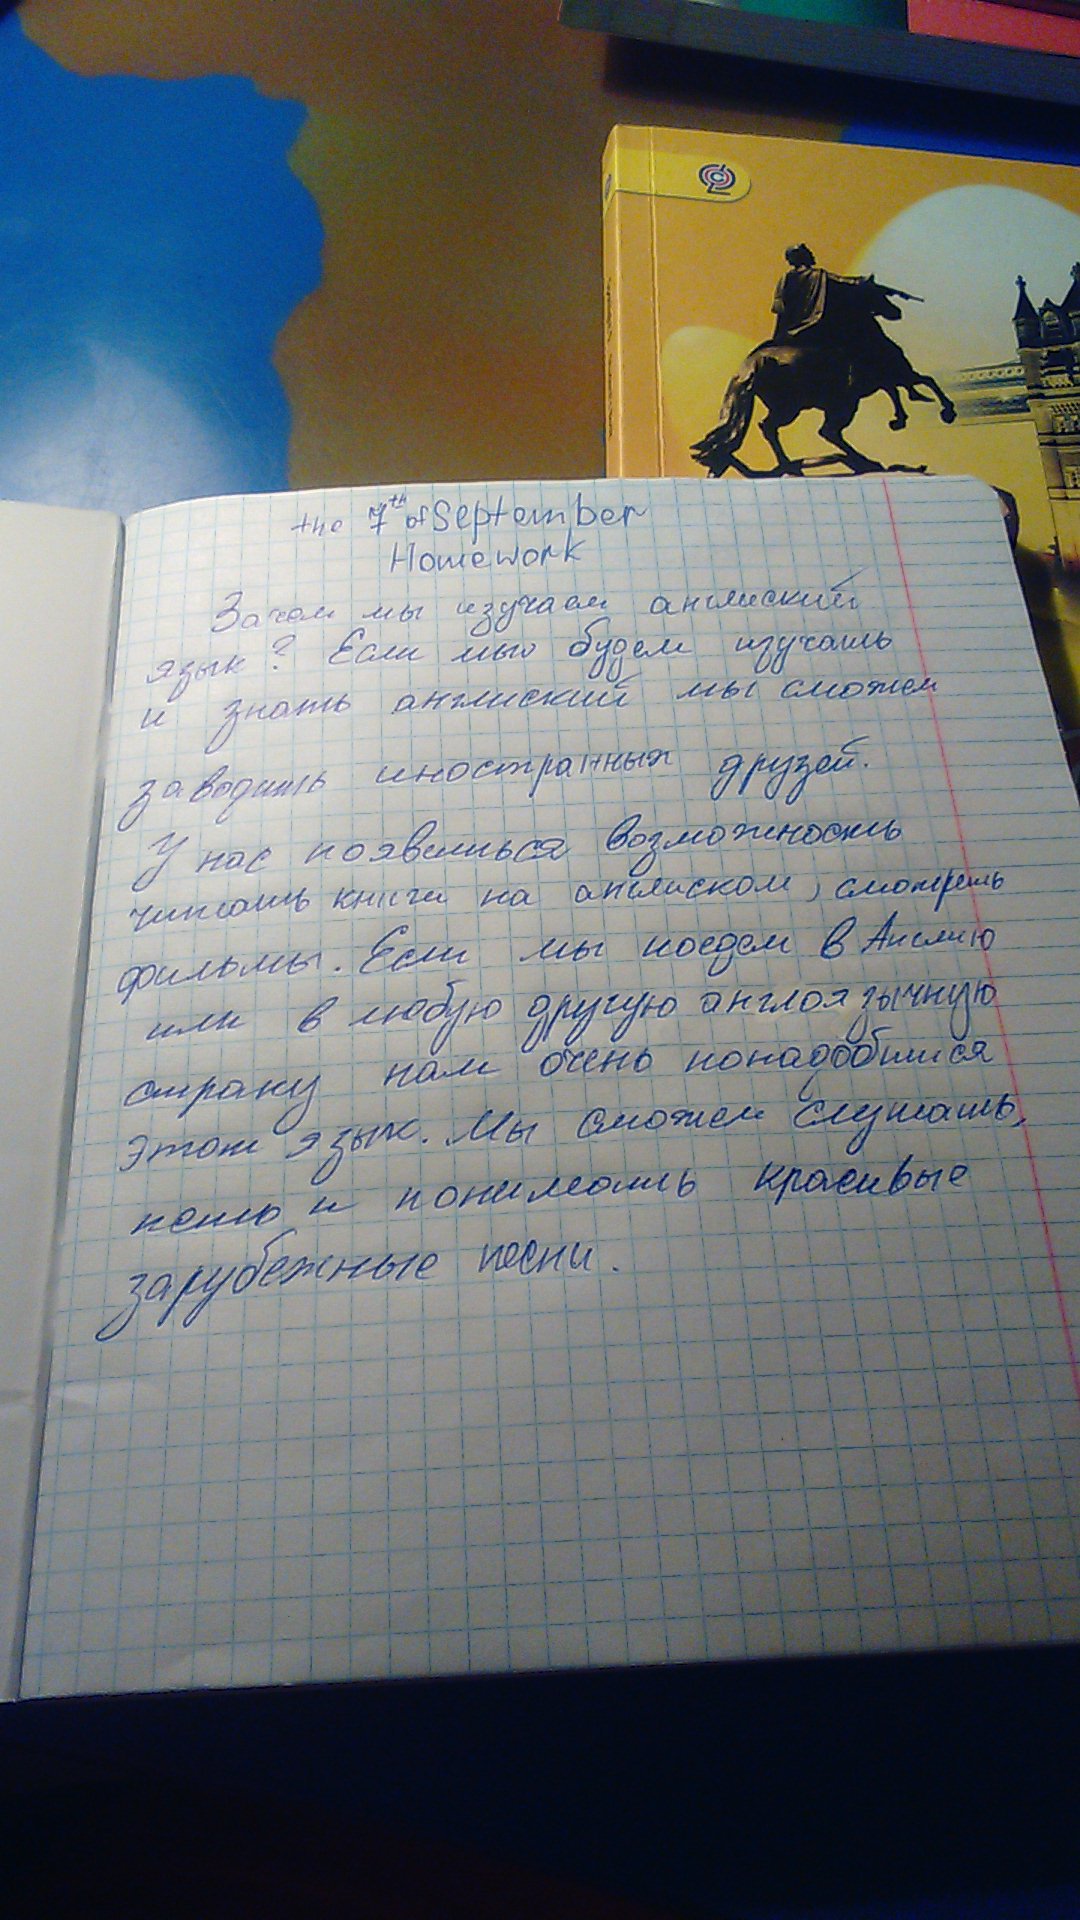 the 7th of September
Homework
Зачем мы изучаем англиский
язык? Если мы будем изучать
и знать англиский мы сможем
заводить иностранных друзей.
У нас появиться возможность
читать книги на англиском, смотреть
фильмы. Если мы поедем в Англию
или в любую другую англоязычную
страну нам очень понадобится
этот язык. Мы сможем слушать,
петь и понимать красивые
зарубежные песни.